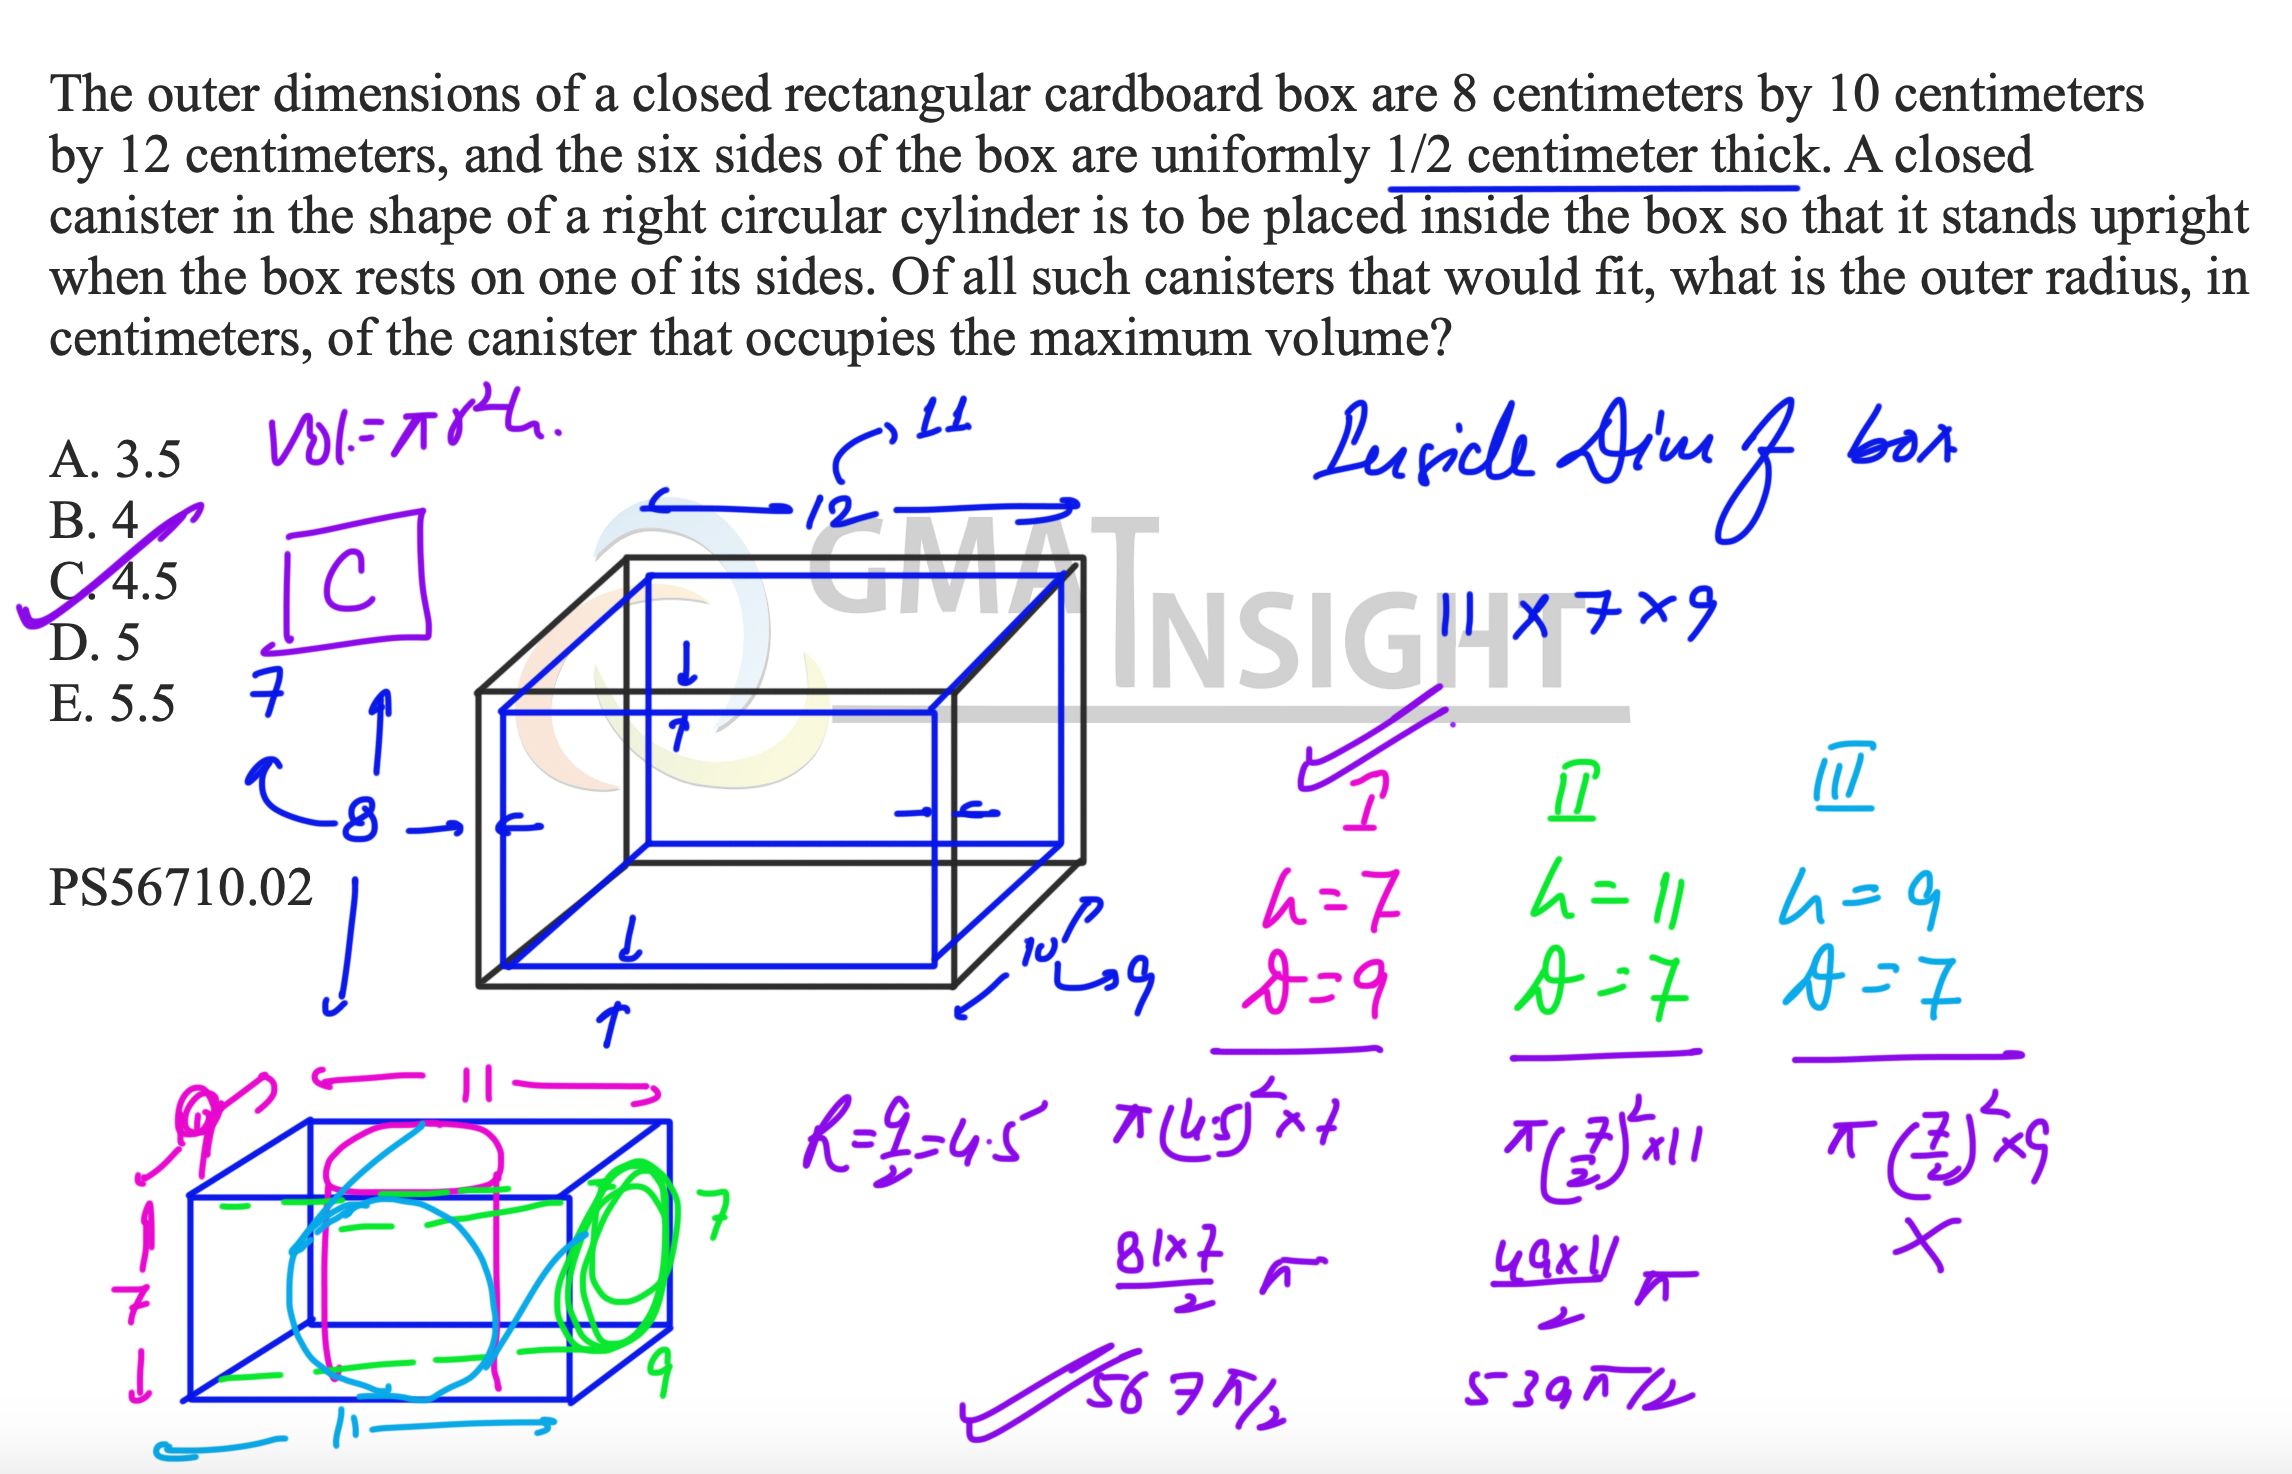 The outer dimensions of a closed rectangular cardboard box are 8 centimeters by 10 centimeters
by 12 centimeters, and the six sides of the box are uniformly 1/2 centimeter thick. A closed
canister in the shape of a right circular cylinder is to be placed inside the box so that it stands upright
when the box rests on one of its sides. Of all such canisters that would fit, what is the outer radius, in
centimeters, of the canister that occupies the maximum volume?
Vol.=πr²h.
11
Inside Dim of box
A. 3.5
B. 4
12
GMAT
C. 4.5
C
INSIGHT
11 x 7 x 9
D. 5
E. 5.5
7
8
I II III
PS56710.02
h=7 h=11 h=9
10
9
D=9 D=7 D=7
9
11
R=9/2=4.5
π(4.5)²x7
π(7/2)²x11
π(7/2)²x9
7
7
81x7/2 π
49x11/2 π
X
9
567π/2
539π/2
11